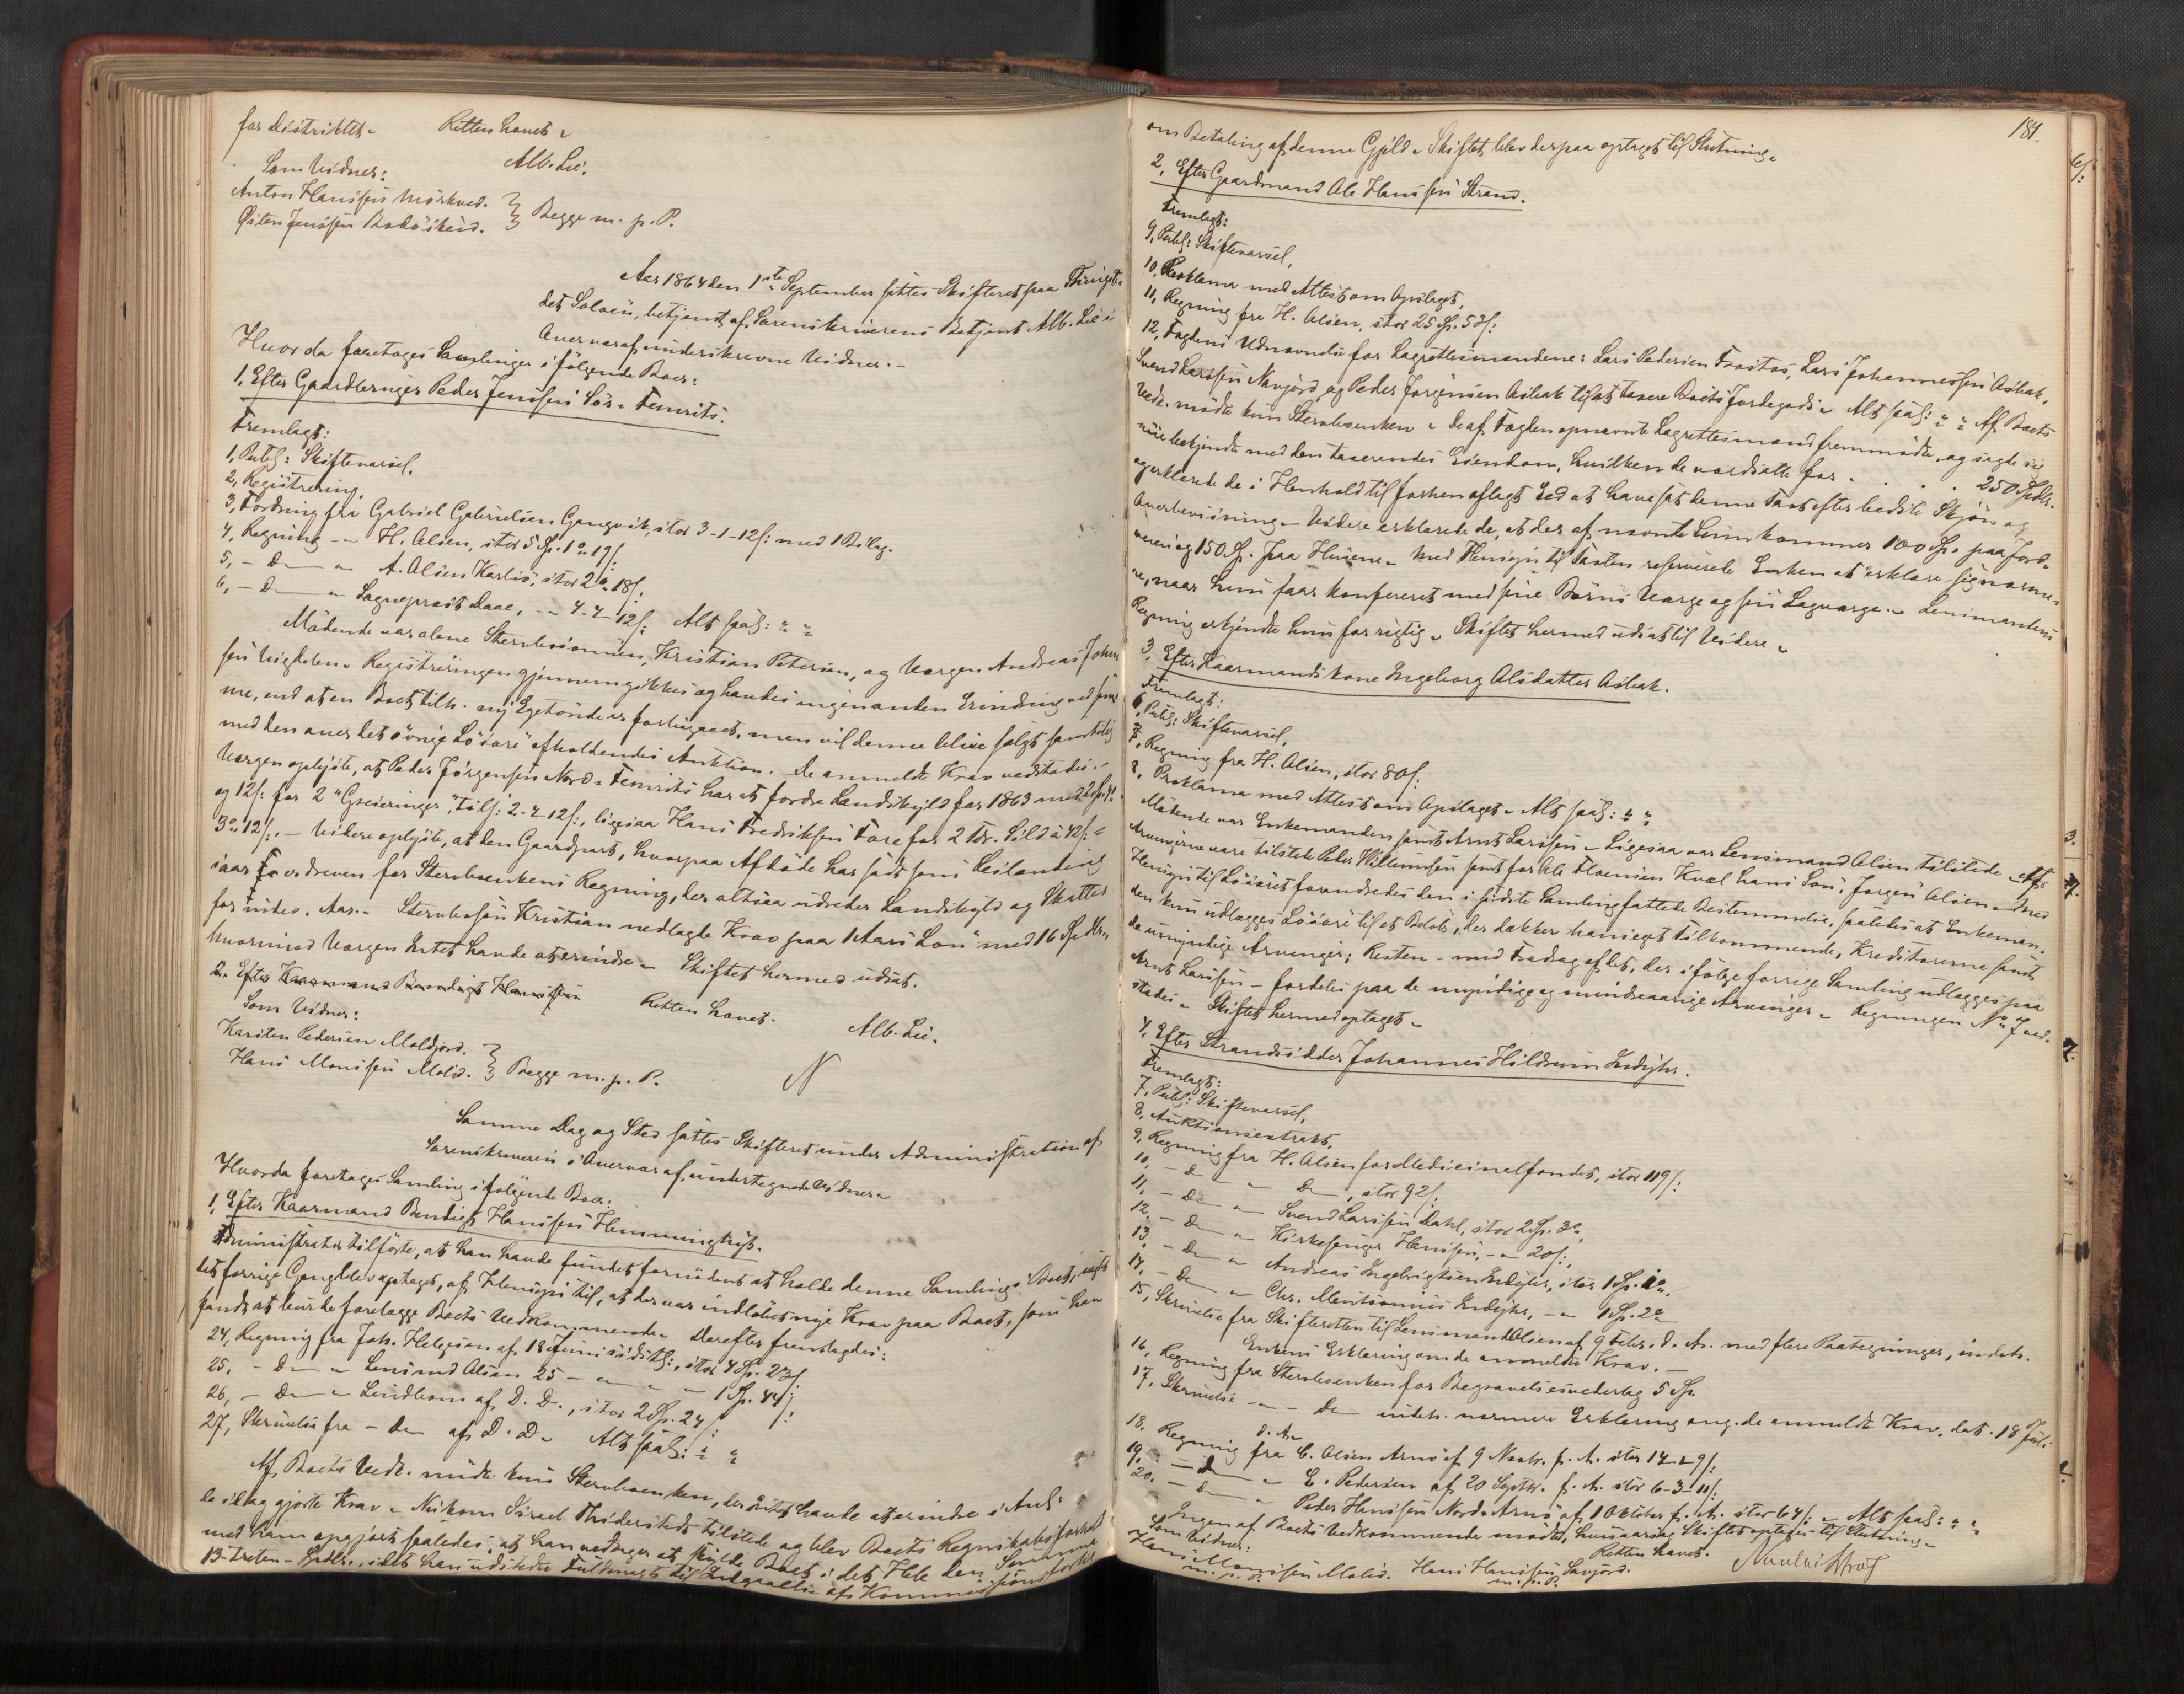 for Distriktet. Retten hævet.
Som Vidner: Alb. Lie.
Anton Hanssen Mörkved. } Begge m. p. P.
Østen Jenssen Bodöskeid.
Aar 1864 den 1ste September sattes Skifteret paa Thingste-
det Saloen, betjent af Sorenskriverens Betjent Alb. Lie i
Overvær af underskrevne Vidner. -
Hvorda foretoges Samlinger i fölgende Boer:
1, Efter Gaardbruger Peder Jenssen Sör-Femris.
Fremlagt:
1, Publ: Skiftevarsel,
2, Registrering,
3, Fordring fra Gabriel Gabrielsen Gangvik, stor 3-1-12 s: med 1 Bilag.
4, Regning — H. Olsen, stor 5 Sp. 1 o. 19 s:
5, - Do — A. Olsen Karlsö, stor 2 o. 18 s:
6, - Do — Sogneprest Daae, — 4-4-12 s: Alt saal:
Mödende var alene Stervbosönnen, Kristian Petersen, og Vergen Andreas Johns-
sen Registreringen gjennemgikkes og havdes ingen anden Erindring ved samme
me, end at en Boet tilh. ny Egetönde er forbigaaet, men vil denne blive solgt samtidig
med den over det övrige Lösöre afholdendes Auktion. De anmeldte Krav vedstodes. -
Vergen oplyste, at Peder Jörgensen Nord-Femris har at fordre Landskyld for 1863 med 2 Sp. 4 o.
og 12 s: for 2 "Græsninger", tils: 2-4-12 s:, ligesaa Hans Fredriksen Fore for 2 Tdr. Sild à 42 s: =
3 o. 12 s: - Videre oplyste, at den Gaardpart, hvorpaa Afdöde har sidt som Leilænding
iaar er dreven for Stervboenkens Regning, der altsaa udreder Landskyld og Skatter
for indev. Aar. - Stervbosön Kristian nedlagde Krav paa 1 Aars Lön med 16 Spdlr.,
hvorimod Vergen Intet havde at erindre. - Skiftet hermed udsat.
2. Efter Kaarmand Bendigt Hanssen
Retten hævet.
Som Vidner: Alb. Lie.
Karsten Pedersen Moldjord. } Begge m. p. P.
Hans Monssen Molid.
N
Samme Dag og Sted sattes Skifteret under Administration af
Sorenskriveren i Overvær af undertegnede Vidner.
Hvorda foretoges Samling i fölgende Boer:
1, Efter Kaarmand Bendigt Hanssen Hemminghyt.
Administrator tilförte, at han havde fundet fornödent at holde denne Samling i Boet, uagt
det forrige Gang blev optaget, af Hensyn til, at der var indlöbet nye Krav paa Boet, som han
fandt at burde forelægge Boets Vedkommende. Derefter fremlagdes:
24, Regning fra Joh. Helgesen af 18 Juni sidstl:, stor 4 Sp. 27 s:
25, - Do — Lensmd Olsen 25 — — — 1 Sp. 44 s:
26, - Do — Lindbom af D. D., stor 2 Sp. 24 s:
27, Skrivelse fra — Do af D. D. Alt saal:
Af Boets Vedk. mödte kun Stervboenken, der Intet havde at erindre i Anl:
de idag gjorte Krav. - tilstede og blev Boets Regnskabsforhold
med ham opgjort saaledes, at han vedtager at skylde Boet i det Hele den Summa
13-tretten-Spdlr., idet han udstedte Fuldmagt til
om Betaling af denne Gjæld. Skiftet blev derpaa optaget til Slutning.
184.
2, Efter Gaardmand Ole Hanssen Strand.
Fremlagt:
9, Publ: Skiftevarsel,
10, Proklama med Attest om Opslaget,
11, Regning fra H. Olsen, stor 25 Sp. 53 s:
12, Fogdens Udnævnelse for Lagrettesmændene: Lars Pedersen Trostos, Lars Johannessen Osbak,
Svend Larssen Navjord og Peder Jörgensen Osbak til at taxere Boets Jordegods. Alt saal: Af Boets
Vedk. mödte kun Stervboenken. De af Fogden opnævnte Lagrettesmænd fremmödte, og sagde sig
nöie bekjendt med den taxerendes Eiendom, hvilken de værdsatte for . . . . 250 Spdlr.
og erklærede de i Henhold til forhen aflagt Eed at have sat denne Taxt efter bedste Skjön og
Overbevisning. Videre erklærede de, at der af nævnte Sum kommer 100 Sp. paa Jord-
veien og 150 Sp. paa Husene. Med Hensyn til Taxten reserverede Enken at erklære sig nærme-
re, naar hun faar konfereret med sine Börns Verge og sin Lagverge. - Lensmandens
Regning erkjendte hun for rigtig. Skiftet hermed udsat til Videre.
3, Efter Kaarmandskone Ingeborg Olsdatter Osbak.
Fremlagt:
6, Publ: Skiftevarsel,
7, Regning fra H. Olsen, stor 80 s:
8, Proklama med Attest om Opslaget. Alt saal:
Mödende var Enkemanden samt Arnt Larssen. Ligesaa var Lensmand Olsen tilstede. Af
Arvingerne vare tilstede Peder Willumsen samt for Ole Floensen Kvæl hans Sön Jörgen Olsen. Med
Hensyn til Lösöret forandredes den i sidste Samling fattede Bestemmelse, saaledes at Enkeman-
den kun udlægges Lösöre til et Belöb, der dækker hans eget Tilkommende, Kreditorerne samt
de umyndige Arvinger; Resten - med Fradrag af det, der ifölge forrige Samling udlægges paa
Arnt Larssen - fordeles paa de myndige og mindreaarige Arvinger. Regningen No 7 ved-
stodes. Skiftet hermed optaget.
4, Efter Strandsidder Johannes Hildrum Indyhr.
Fremlagt:
7, Publ: Skiftevarsel,
8, Auktionsextrakt,
9, Regning fra H. Olsen for Medicinalfondet, stor 119 s:
10, - Do — Do, stor 92 s:
11, - Do — Svend Larssen Dahl, stor 2 Sp. 3 o,
12, - Do — Kirkesanger Hanssen, — 20 s:,
13, - Do — Andreas Ingebrigtsen Indyhr, stor 1 Sp. 1 o,
14, - Do — Chr. Indyhr, — 1 Sp. 2 o
15, Skrivelse fra Skifteretten til Lensmand Olsen af 9 Febr. d. A. med flere Paategninger, indeh.
Enkens Erklæring om de anmeldte Krav. -
16, Regning fra Stervboenken for Begravelsesvederlag 5 Sp.
17, Skrivelse — Do indeh. nærmere Erklæring ang. de anmeldte Krav, dat. 18 Juli
d. A.
18, Regning fra C. Olsen Arnö af 9 Novbr. f. A. stor 14-2-9 s:
19, - Do — E. Pedersen af 20 Septbr. f. A. stor 6-3-11 s:
20, - Do — Peder Hanssen Nord-Arnö af 1 Oktober f. A. stor 64 s: - Alt saal:
Ingen af Boets Vedkommende mödte, hvisaarsag Skiftet optoges til Slutning.
Som Vidner: Retten hævet.
Hans Monssen Molid. Hans Hanssen Savjord.
m. p. P. m. p. P.